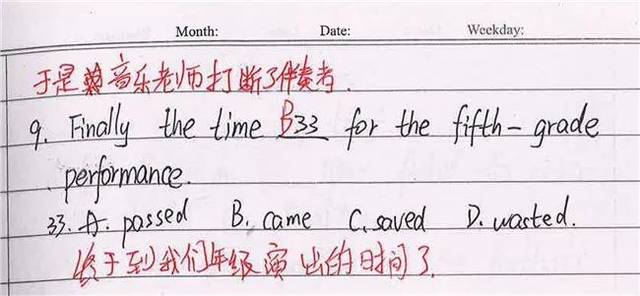 Month: Date: Weekday:
于是音乐老师打断了伴奏者.
9. Finally the time B33 for the fifth-grade
performance.
33. A. passed B. came C. saved D. wasted.
终于到我们年级演出的时间了.